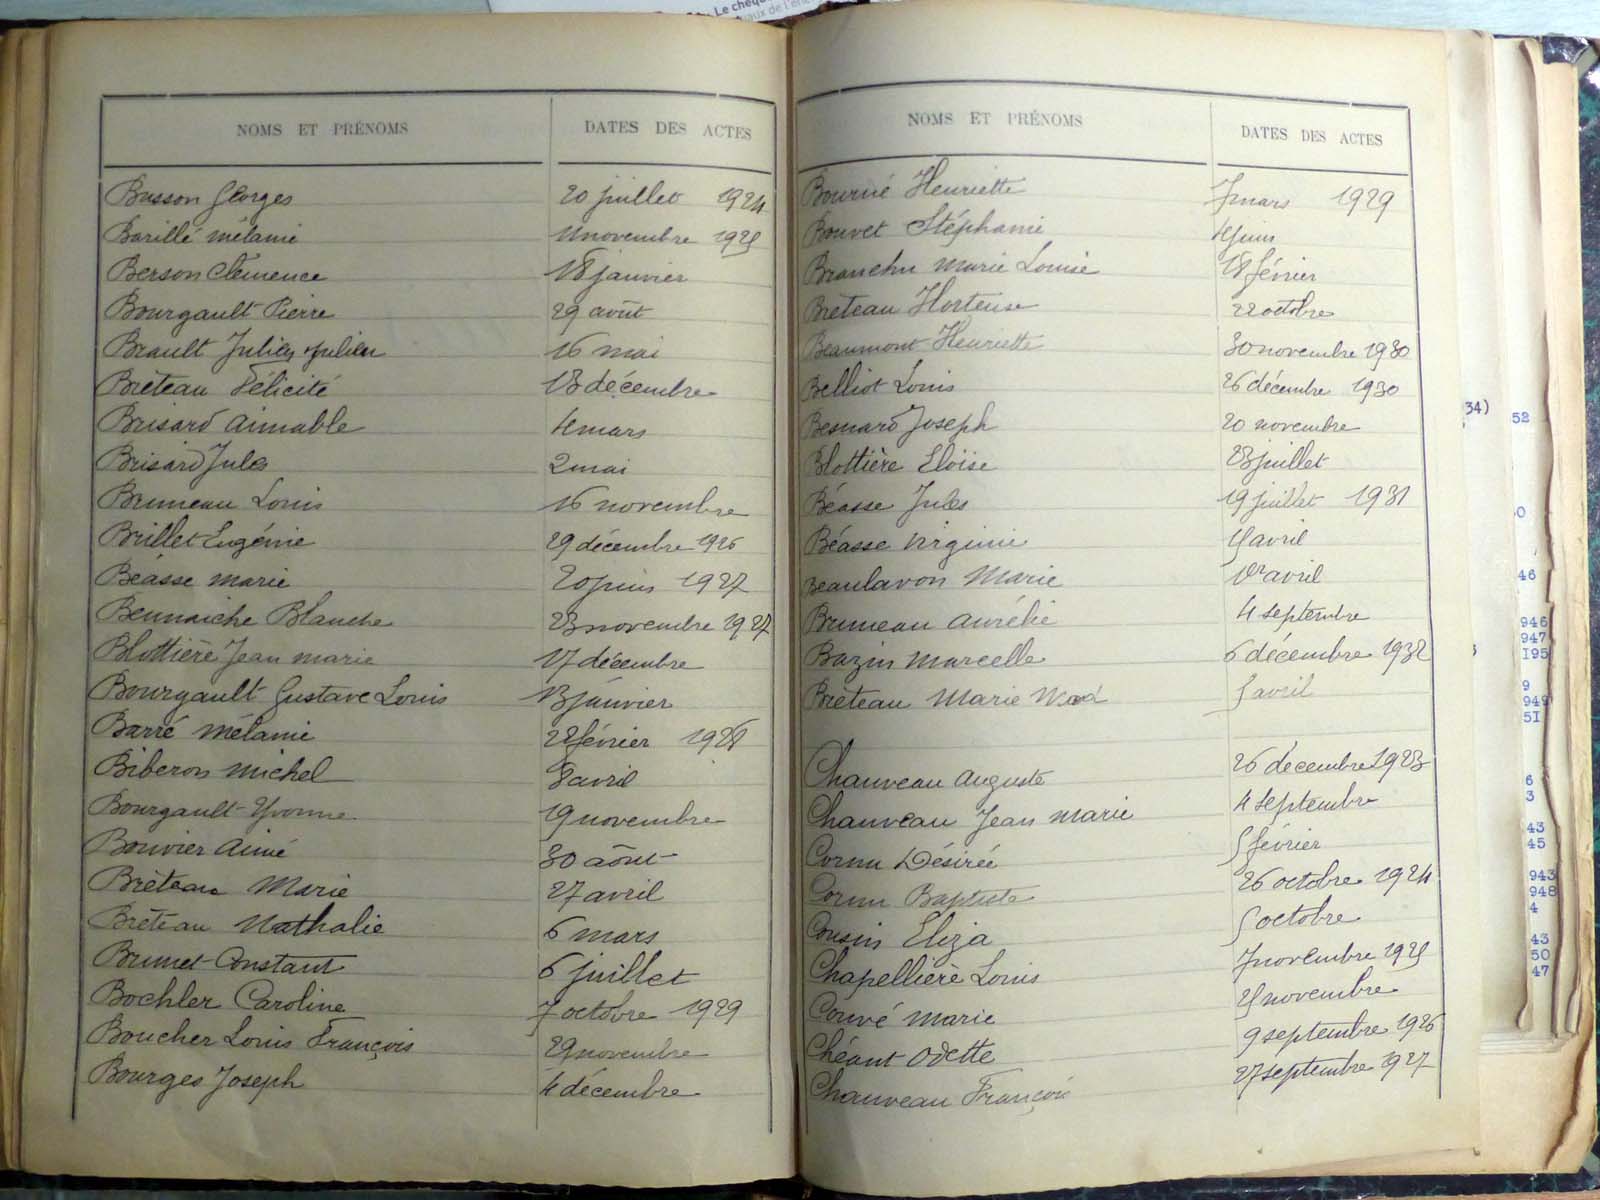 Le chèqu
NOMS ET PRÉNOMS DATES DES ACTES
Busson Georges 20 juillet 1924
Barillé mélanie 11 novembre 1925
Berson Clemence 18 janvier
Bourgault Pierre 29 août
Brault Julien 16 mai
Bréteau Félicité 13 décembre
Brisard aimable 4 mars
Brisard Jules 2 mai
Bruneau Louis 16 novembre
Brillet Eugénie 29 décembre 1926
Béasse marie 20 juin 1927
Bennaiche Blanche 23 novembre 1927
Blottière Jean marie 17 décembre
Bourgault Gustave Louis 13 janvier
Barré mélanie 22 février 1928
Biberon michel 8 avril
Bourgault Yvonne 19 novembre
Bouvier aimé 30 août
Bréteau Marie 27 avril
Bréteau Nathalie 6 mars
Brunet Constant 6 juillet
Bochler Caroline 7 octobre 1929
Boucher Louis François 29 novembre
Bourges Joseph 4 décembre
NOMS ET PRÉNOMS DATES DES ACTES
Bourné Henriette 7 mars 1929
Bouvet Stéphanie 4 juin
Branchu Marie Louise 18 février
Bréteau Hortense 22 octobre
Beaumont Henriette 30 novembre 1930
Belliot Louis 26 décembre 1930
Besnard Joseph 20 novembre
Blottière Eloïse 23 juillet
Béasse Jules 19 juillet 1931
Béasse Virginie 15 avril
Beaulavon Marie 1er avril
Bruneau aurélie 4 septembre
Bazin Marcelle 6 décembre 1932
Bréteau Marie 5 avril
Chauveau Auguste 26 décembre 1923
Chauveau Jean marie 4 septembre
Cornu Désirée 5 février
Cornu Baptiste 26 octobre 1924
Cousin Eliza 5 octobre
Chapellière Louis 7 novembre 1925
Couvé Marie 25 novembre
Chéant Odette 9 septembre 1926
Chauveau François 27 septembre 1927
34)
52
46
946
947
195
9
949
51
6
3
43
45
943
948
4
43
50
47